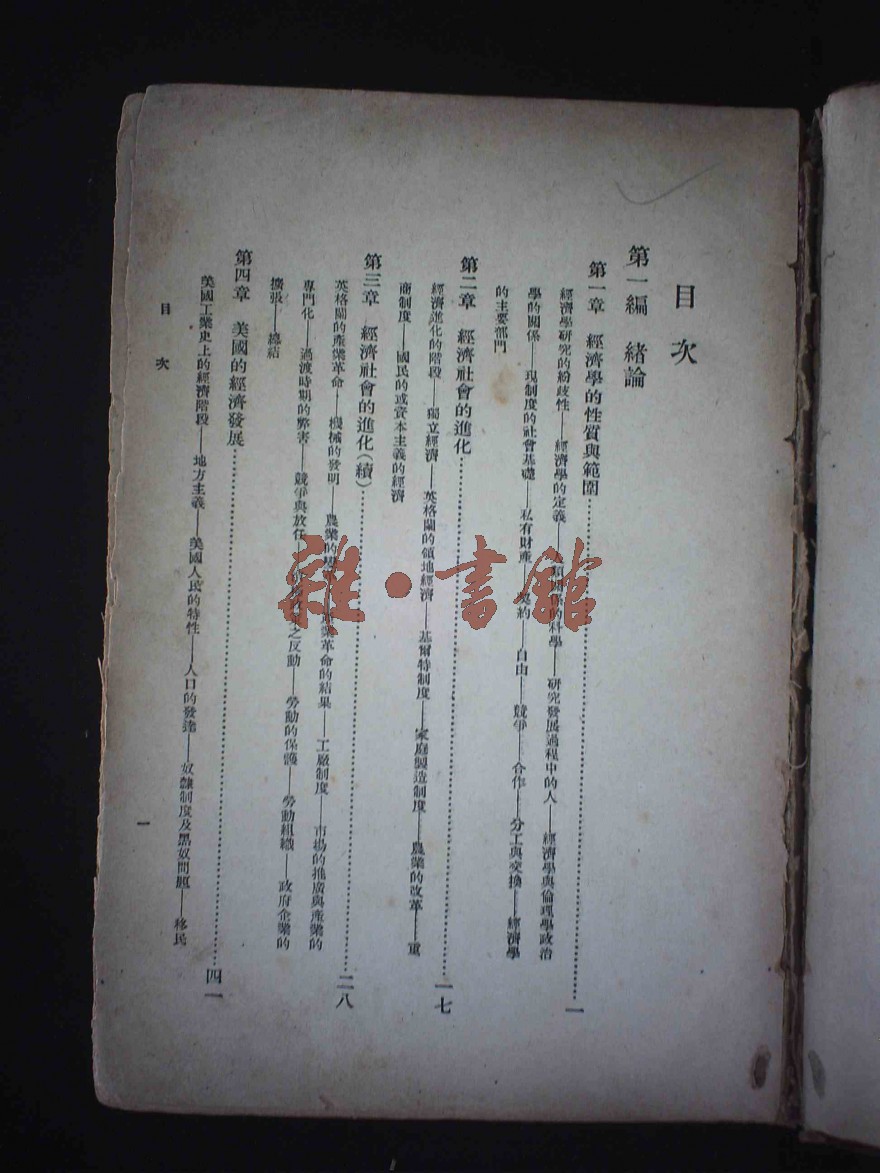 目次
第一編　緒論
第一章　經濟學的性質與範圍……一
經濟學研究的紛歧性——經濟學的定義——科學——研究發展過程中的人——經濟學與倫理學政治
學的關係——現制度的社會基礎——私有財產——契約——自由——競爭——合作——分工與交換——經濟學
的主要部門
第二章　經濟社會的進化……一七
經濟進化的階段——獨立經濟——英格蘭的領地經濟——基爾特制度——家庭製造制度——農業的改革——重
商制度——國民的或資本主義的經濟
第三章　經濟社會的進化(續)……二八
英格蘭的產業革命——機械的發明——農業的業革命的結果——工廠制度——市場的推廣與產業的
專門化——過渡時期的弊害——競爭與放任之反動——勞動的保護——勞動組織——政府企業的
擴張——總結
第四章　美國的經濟發展……四一
美國工業史上的經濟階段——地方主義——美國人民的特性——人口的發達——奴隸制度及黑奴問題——移民
目次
一
雜·書館